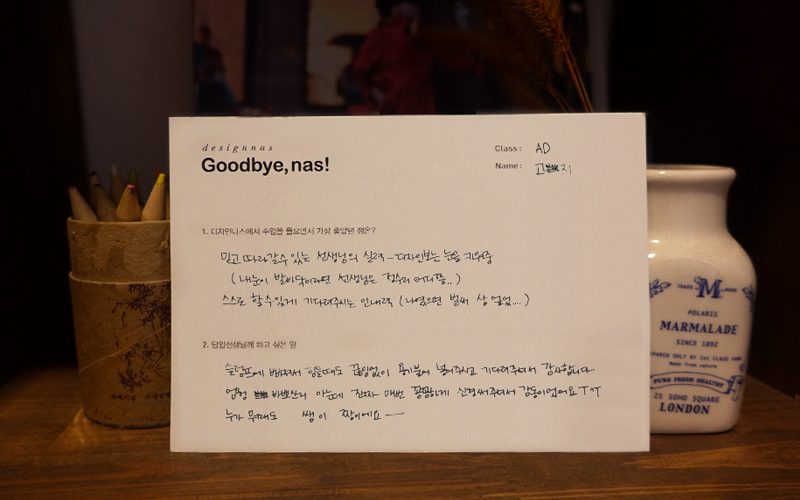 designnas
Goodbye, nas!
Class: AD
Name: 고 지
1. 디자인나스에서 수업을 들으면서 가장 좋았던 점은?
믿고 따라갈 수 있는 선생님의 실력 – 디자인보는 눈을 키워줌
( 내 눈이 발바닥이라면 선생님은 정수리 어디쯤.. )
스스로 할 수 있게 기다려주시는 인내력 ( 나였으면 벌써 상 엎었.... )
2. 담임선생님께 하고 싶은 말
슬럼프에 빠져서 힘들때도 끊임없이 용기 불어 넣어주시고 기다려주셔서 감사합니다
엄청 바쁘신거 아는데 진짜 매번 꼼꼼하게 신경써주셔서 감동이었어요 TAT
누가 뭐래도 쌤이 짱이에요 —
TRADE M MARK
POLARIS
MARMALADE
SINCE 1892
PARED ONLY BY
Made from nature
PURE FRESH HEALTHY
21 SOHO SQUARE
LONDON